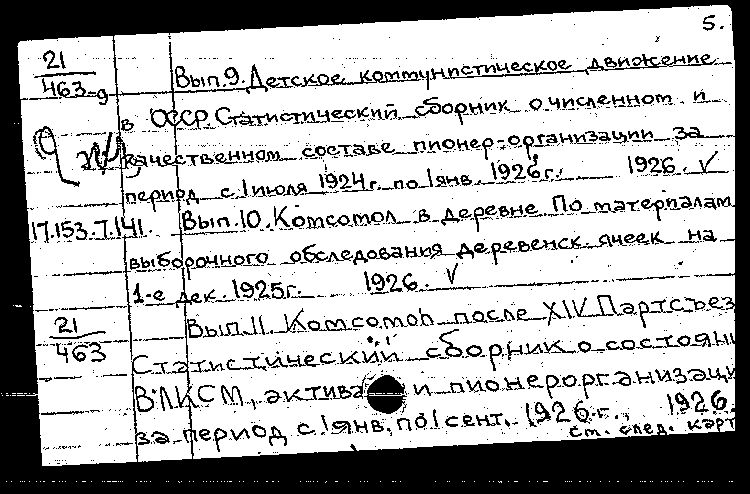 5.
21
463-д
Вып.9. Детское коммунистическое движение
в СССР. Статистический сборник о численном и
качественном составе пионер-организации за
период с 1 июля 1924г. по 1 янв. 1926г. 1926. ✓
17.153.7.141. Вып.10. Комсомол в деревне По материалам
выборочного обследования деревенск. ячеек на
1-е дек. 1925г. 1926. ✓
21
463
Вып.11. Комсомол после XIV Партсъез
Статистический сборник о состояни
ВЛКСМ, актива и пионерорганизаци
за период с 1 янв. по 1 сент. 1926 г. 1926.
см. след. карт